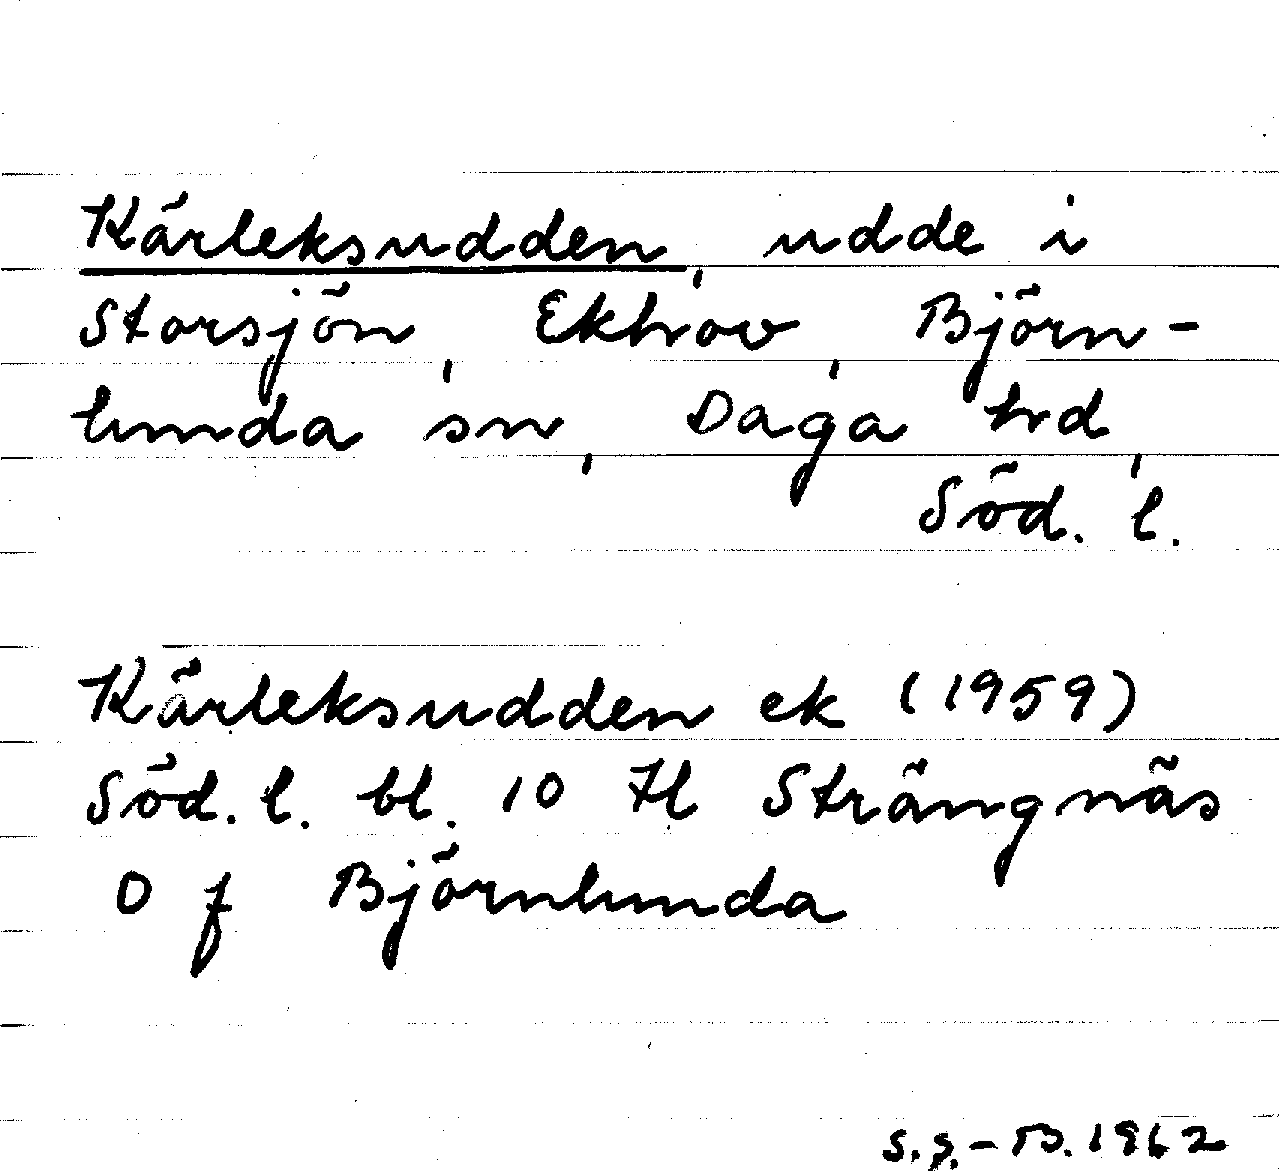 Kärleksudden, udde i
Storsjön, Ekhov, Björn-
lunda sn, Daga hd,
Söd. l.
Kärleksudden ek (1959)
Söd. l. bl. 10 H Strängnäs
O f Björnlunda
S.g.-B. 1962